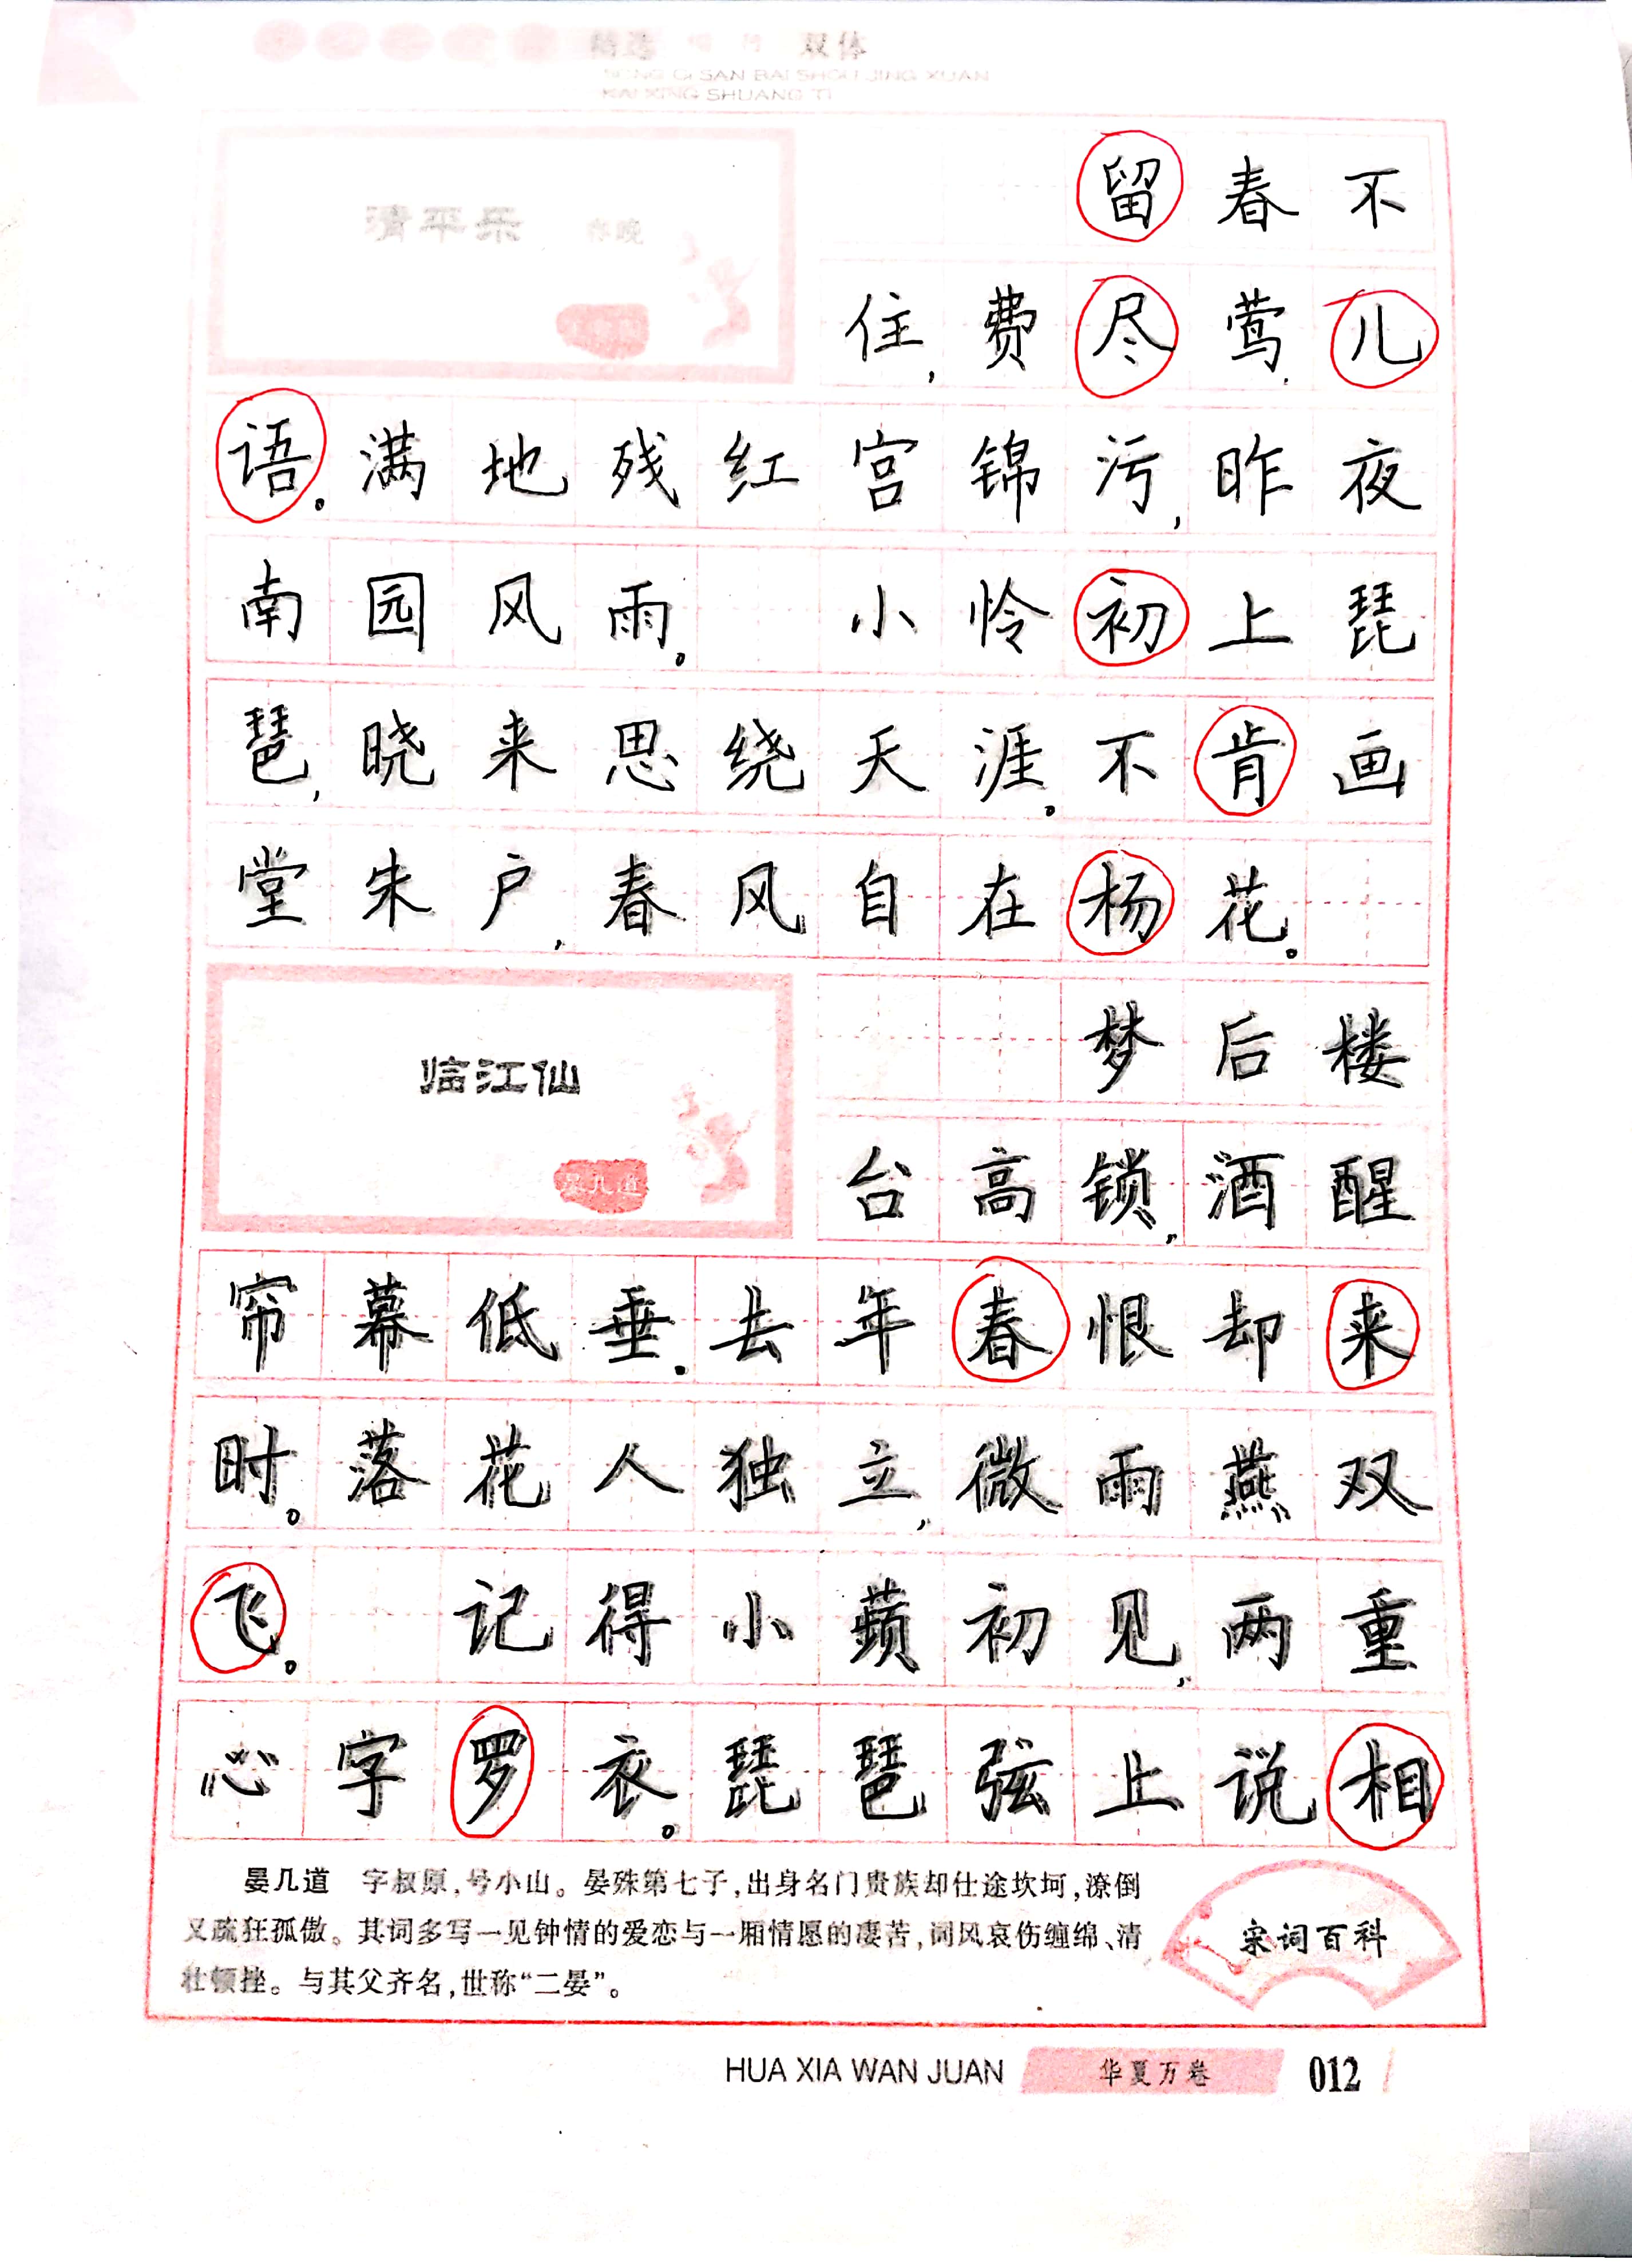 精选 双体
SONG CI SAN BAI SHOU JING XUAN
KAI XING SHUANG TI
清平乐 春晚
留春不
住,费尽莺儿
语。满地残红宫锦污,昨夜
南园风雨。 小怜初上琵
琶,晓来思绕天涯。不肯画
堂朱户,春风自在杨花。
临江仙
晏几道
梦后楼
台高锁,酒醒
帘幕低垂。去年春恨却来
时。落花人独立,微雨燕双
飞。 记得小蘋初见,两重
心字罗衣。琵琶弦上说相
晏几道 字叔原,号小山。晏殊第七子,出身名门贵族却仕途坎坷,潦倒
又疏狂孤傲。其词多写一见钟情的爱恋与一厢情愿的凄苦,词风哀伤缠绵、清
壮顿挫。与其父齐名,世称“二晏”。
宋词百科
HUA XIA WAN JUAN 华夏万卷 012